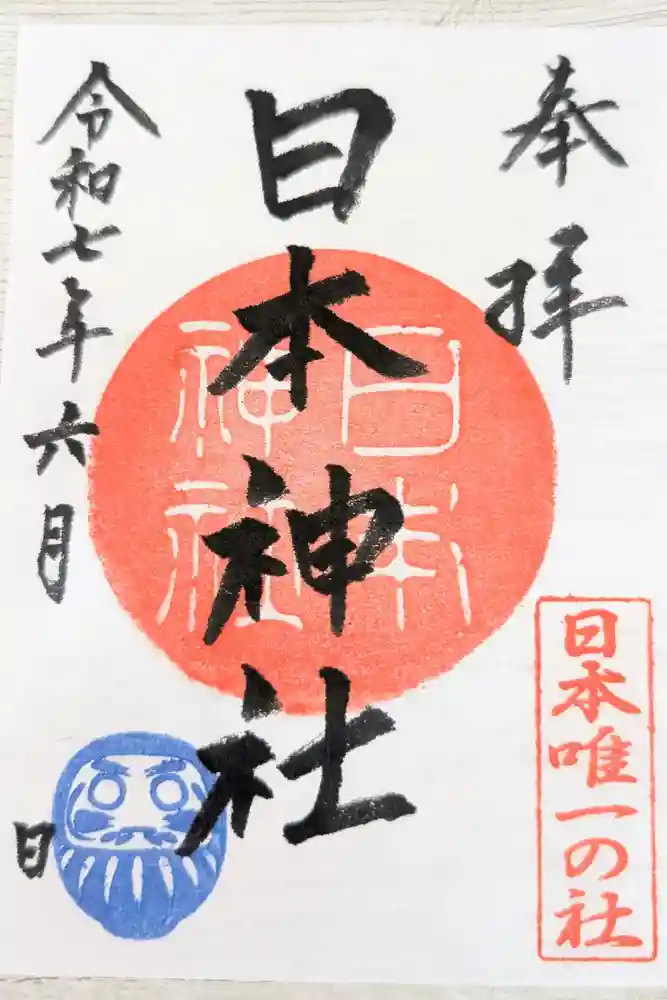 奉拝
日本神社
日本神社
令和七年六月
日
日本唯一の社